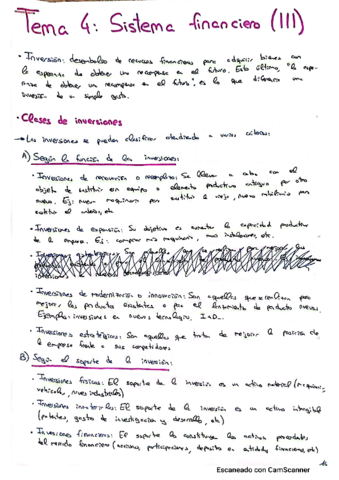 Tema 4: Sistema financiero (III)
· Inversión: desembolso de recursos financieros para adquirir bienes con
la esperanza de obtener una recompensa en el futuro. Esto último, "la espe-
ranza de obtener una recompensa en el futuro", es lo que diferencia una
inversión de un simple gasto.
· Clases de inversiones
→ Las inversiones se pueden clasificar atendiendo a varios criterios:
A) Según la función de las inversiones:
· Inversiones de renovación o reemplazo: Se llevan a cabo con el
objeto de sustituir un equipo o elemento productivo antiguo por otro
nuevo. Ej: nueva maquinaria por sustituir la vieja, nuevo mobiliario por
sustituir el
· Inversiones de expansión: Su objetivo es aumentar la capacidad productiva
de la empresa. Ej: comprar más maquinaria, más instalaciones, etc.
· Inversiones de modernización o innovación: Son aquellas que se realizan para
mejorar los productos existentes o por el lanzamiento de productos nuevos.
Ejemplo: inversiones en nuevas tecnologías, I+D...
· Inversiones estratégicas: Son aquellas que tratan de mejorar la posición de
la empresa frente a sus competidores
B) Según el soporte de la inversión:
· Inversiones físicas: El soporte de la inversión es un activo material (maquinaria,
vehículos, naves industriales)
· Inversiones inmateriales: El soporte de la inversión es un activo intangible
(patentes, gastos de investigación y desarrollo, etc)
· Inversiones financieras: El soporte lo constituyen los activos procedentes
del mercado financiero (acciones, participaciones, depósitos en entidades financieras, etc)
Escaneado con CamScanner